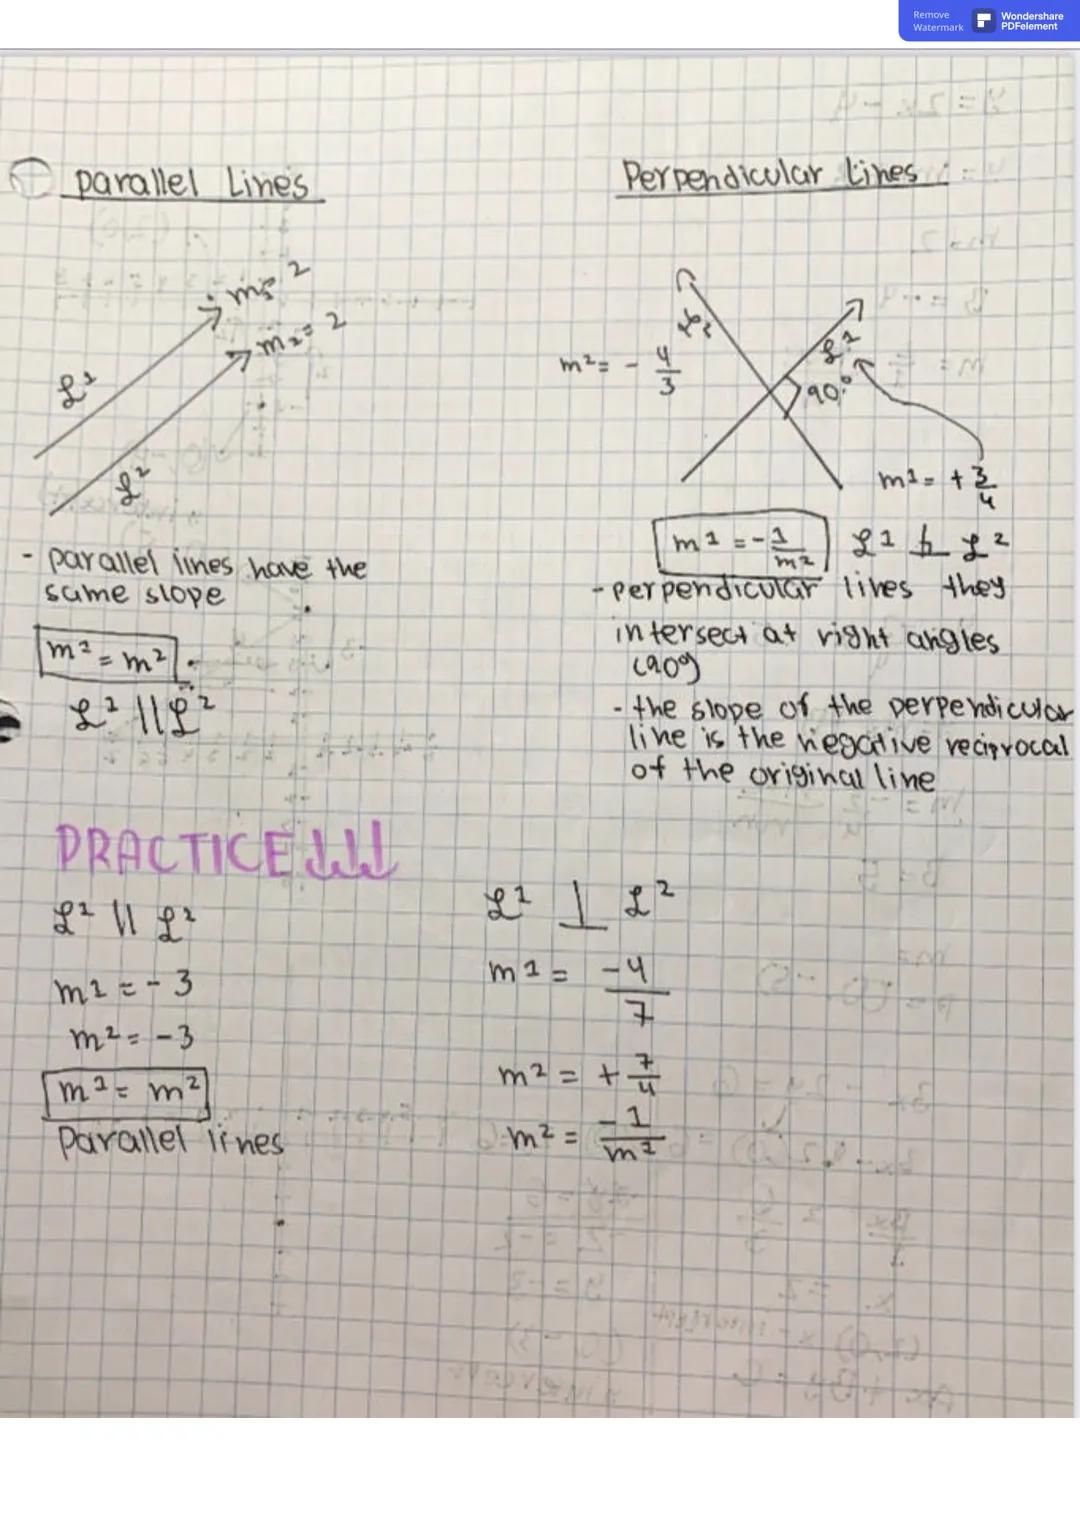 Remove
Watermark
Wondershare
PDFelement
Parallel Lines
m1= 2
m2= 2
L1
L2
- parallel lines have the
same slope
m2 = m2
L2 || L2
Perpendicular Lines
L2
L1
m2= - 4/3
90°
m1= + 3/4
m1 = - 1/m2
L1 ⊥ L2
- perpendicular lines they
intersect at right angles
(90°)
- the slope of the perpendicular
line is the negative reciprocal
of the original line
PRACTICE
L1 || L2
m1 = - 3
m2 = - 3
m1 = m2
Parallel lines
L1 ⊥ L2
m1 = -4/7
m2 = + 7/4
m2 = -1/m2